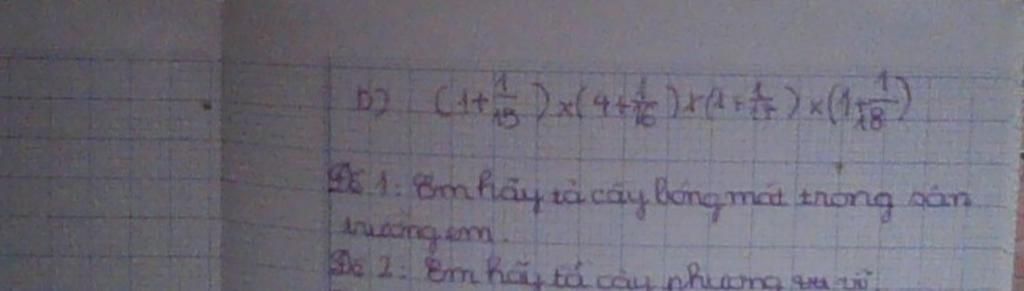 b) (1+1/15)×(1+1/16)×(1+1/17)×(1+1/18)
Đề 1: Em hãy tả cây bóng mát trồng gần
trường em.
Đề 2: Em hãy tả cây phượng